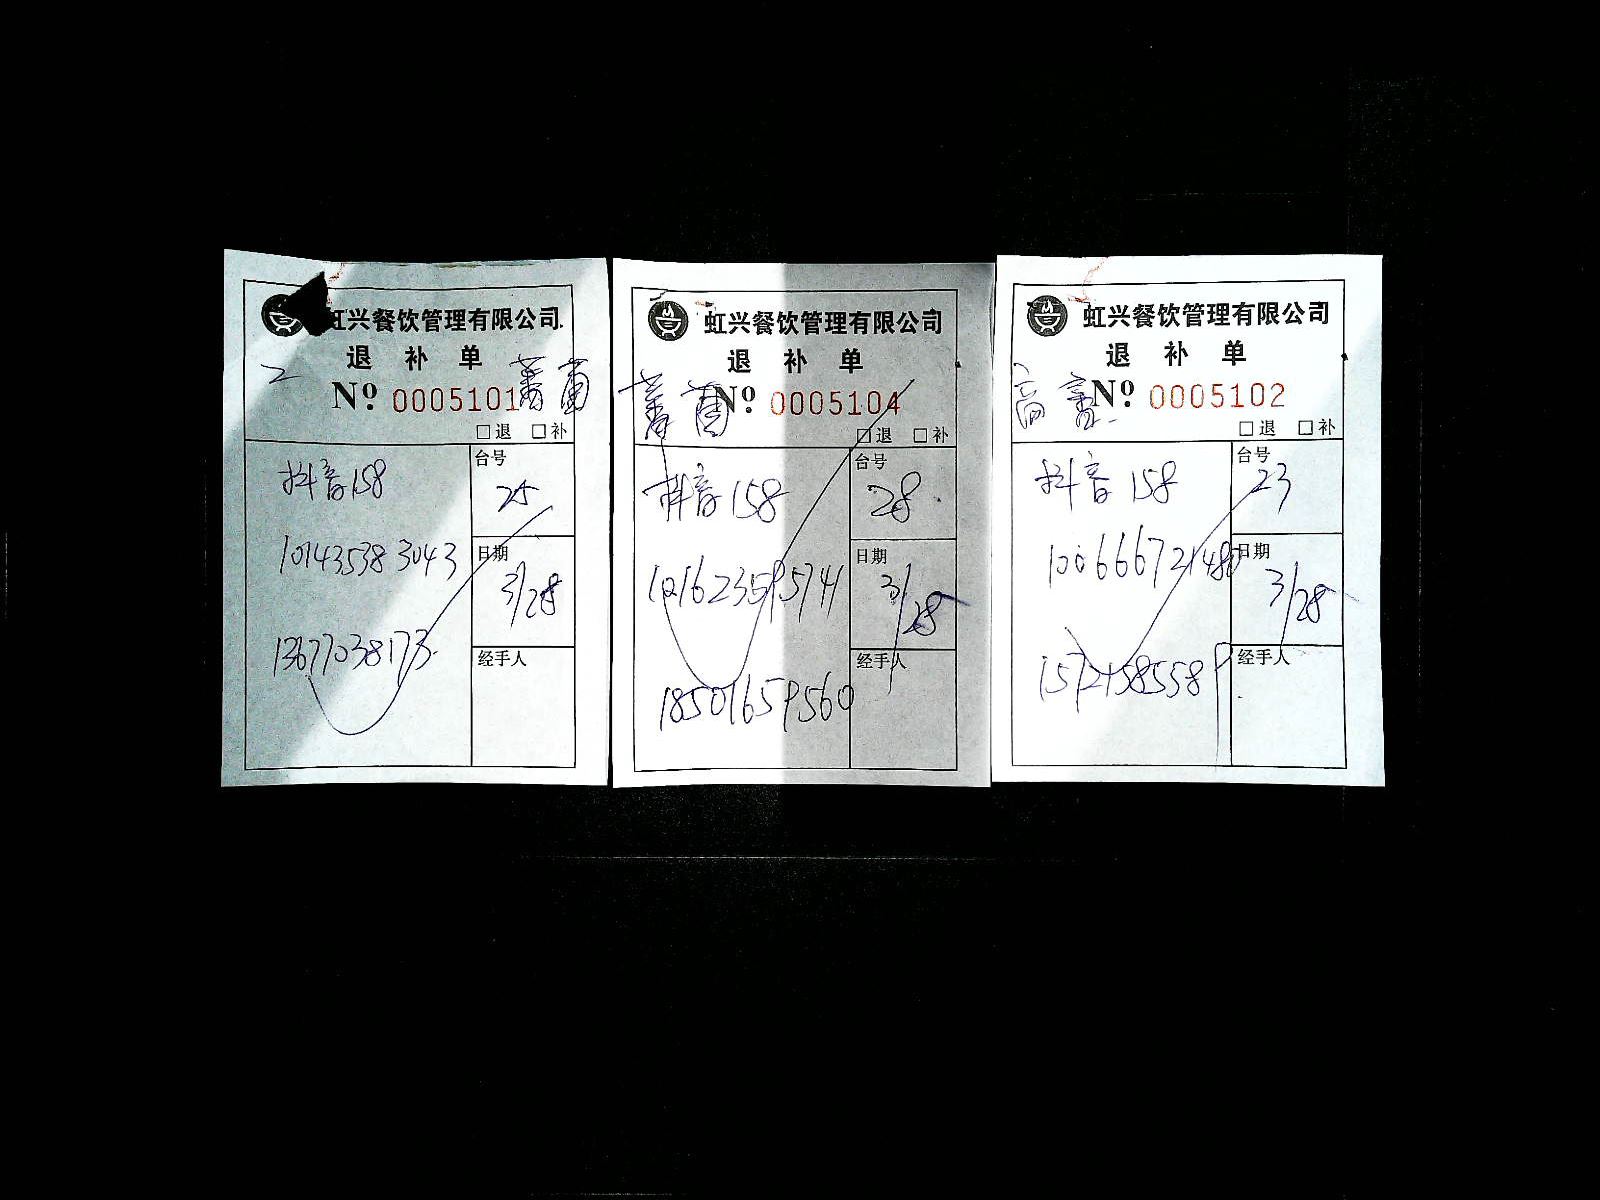 虹兴餐饮管理有限公司
退 补 单
2
Nº 0005101
□退 □补
抖音158
台号
25
101435383043
日期
3/28
13677038173
经手人
虹兴餐饮管理有限公司
退 补 单
Nº 0005104
□退 □补
抖音158
台号
28
101623595741
日期
3/28
18501659560
经手人
虹兴餐饮管理有限公司
退 补 单
Nº 0005102
□退 □补
抖音158
台号
23
日期
3/28
经手人